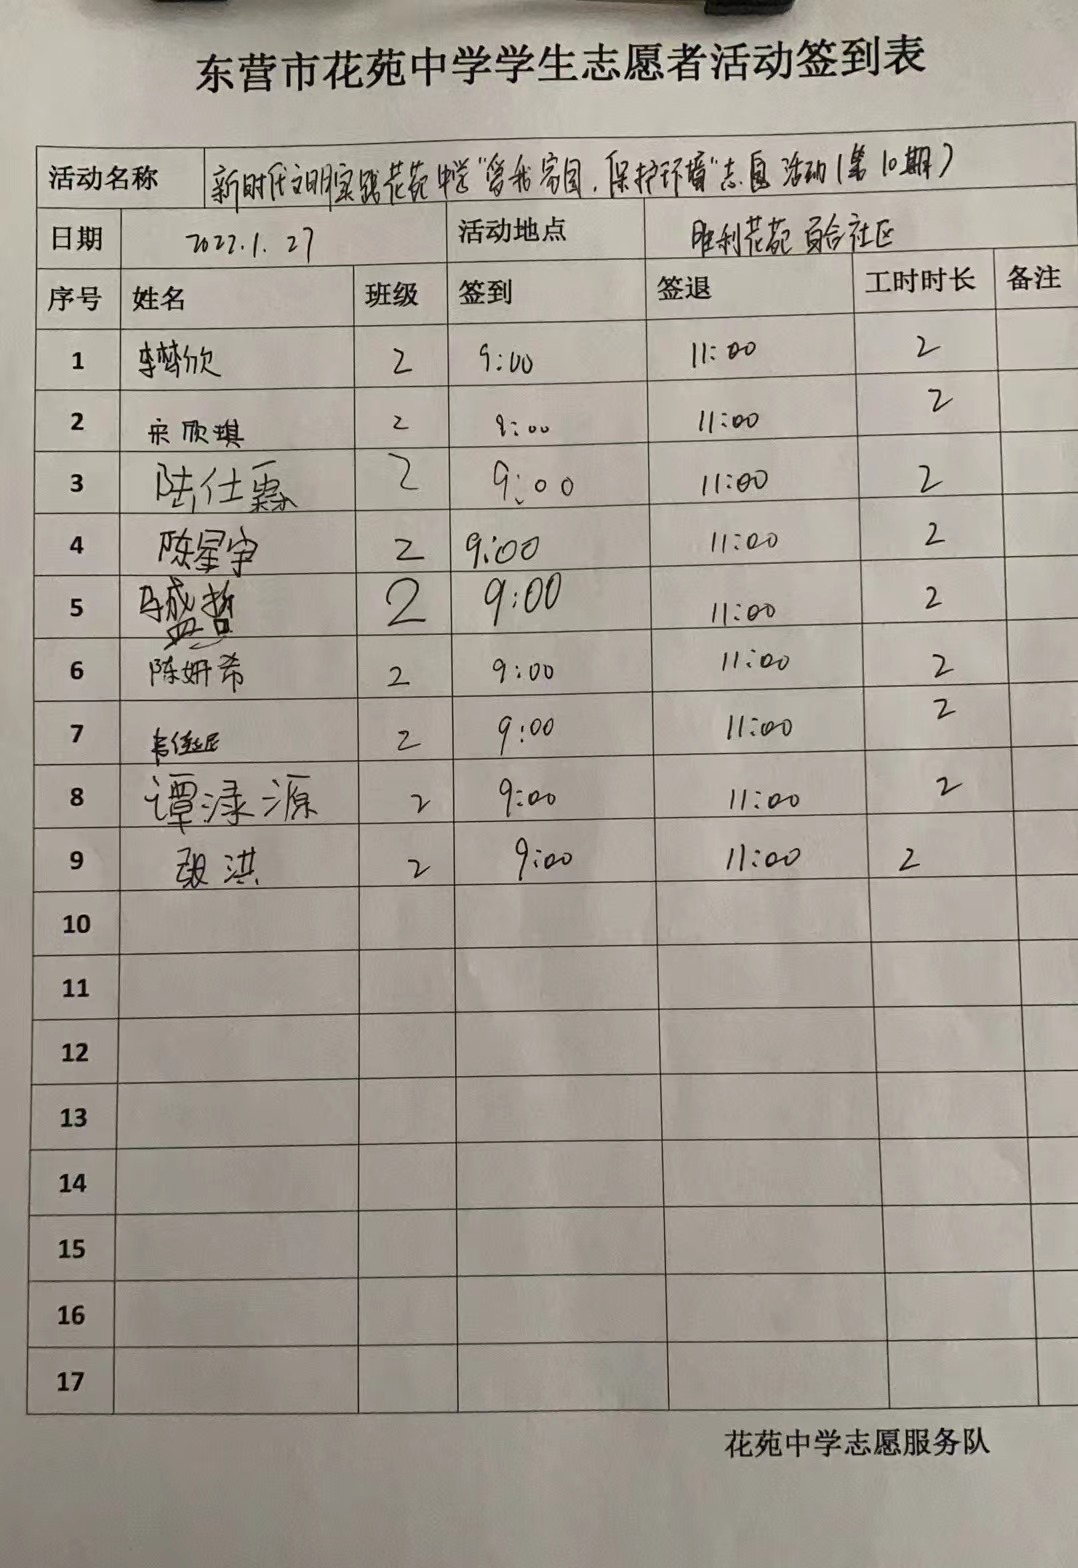 东营市花苑中学学生志愿者活动签到表
活动名称 新时代文明实践花苑中学"爱我家园,保护环境"志愿活动(第10期)
日期 2022.1.27 活动地点 胜利花苑百合社区
序号 姓名 班级 签到 签退 工时时长 备注
1 李梦欣 2 9:00 11:00 2
2 宋欣琪 2 9:00 11:00 2
3 陆仕霖 2 9:00 11:00 2
4 陈星宇 2 9:00 11:00 2
5 马盛哲 2 9:00 11:00 2
6 陈妍希 2 9:00 11:00 2
7 2 9:00 11:00 2
8 谭渌源 2 9:00 11:00 2
9 2 9:00 11:00 2
10
11
12
13
14
15
16
17
花苑中学志愿服务队